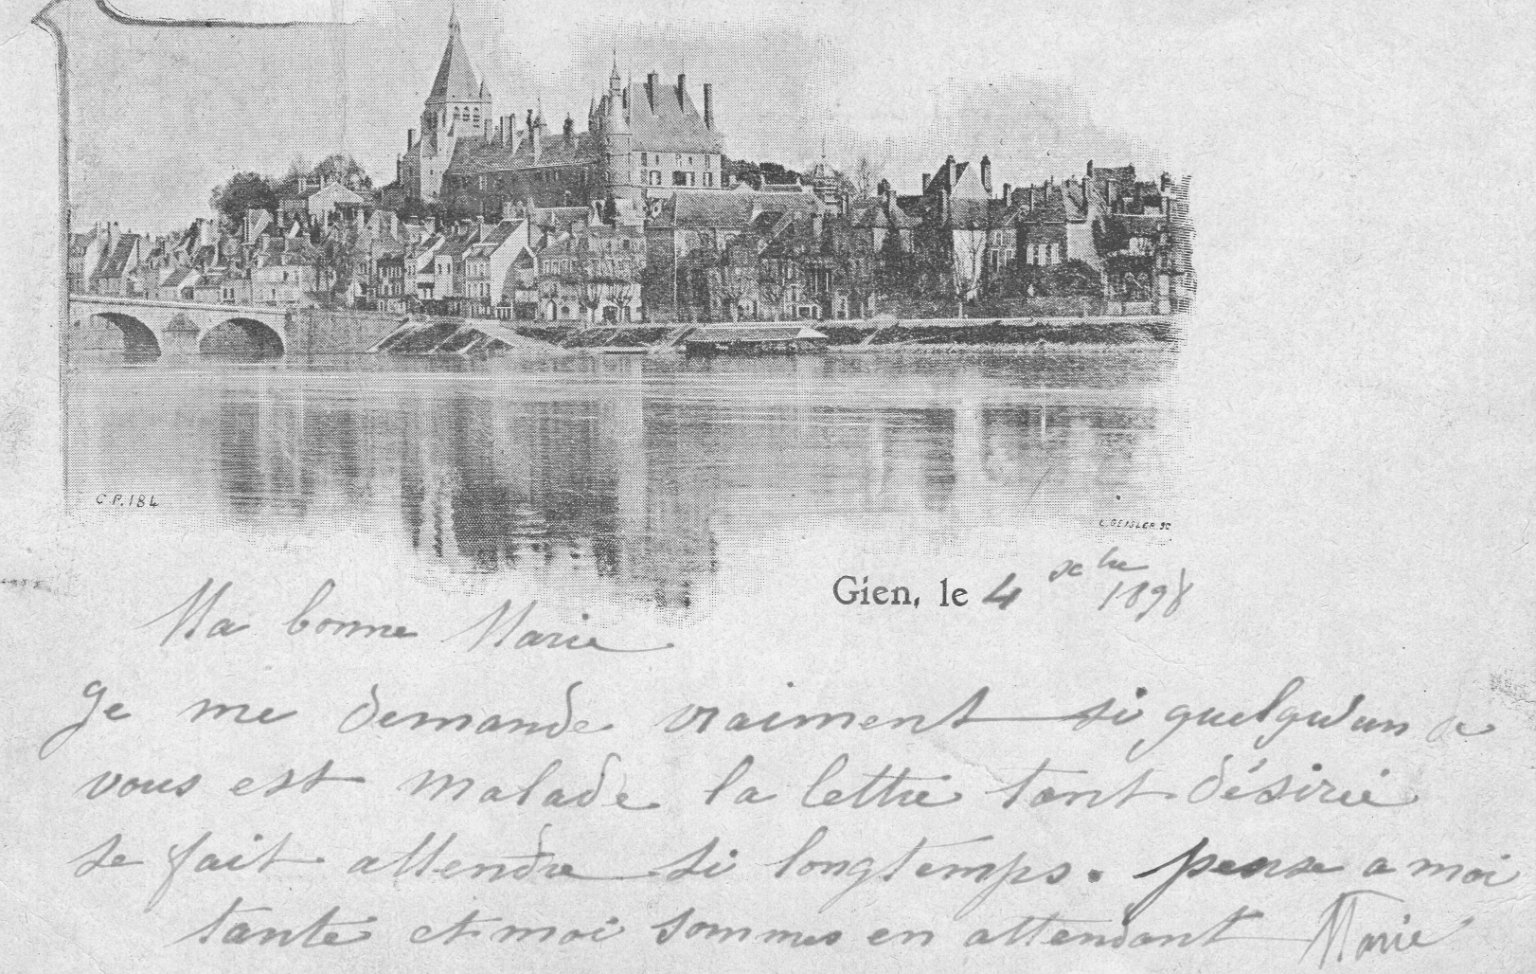 C.P. 184
L. GEISLER. 92
Gien, le 4 xbre 1898
Ma bonne Marie
Je me demande vraiment si quelqu'un a
vous est malade la lettre tant désirée
se fait attendre si longtemps. pense a moi
tante et moi sommes en attendant Marie